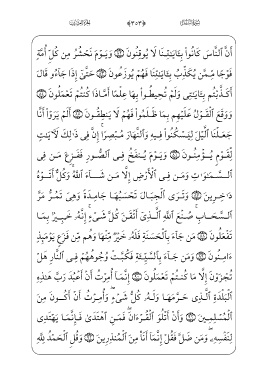 أَنَّ ٱلنَّاسَ كَانُوا۟ بِـَٔايَـٰتِنَا لَا يُوقِنُونَ ﴿٨٢﴾ وَيَوْمَ نَحْشُرُ مِن كُلِّ أُمَّةٍ
فَوْجًا مِّمَّن يُكَذِّبُ بِـَٔايَـٰتِنَا فَهُمْ يُوزَعُونَ ﴿٨٣﴾ حَتَّىٰٓ إِذَا جَآءُو قَالَ
أَكَذَّبْتُم بِـَٔايَـٰتِى وَلَمْ تُحِيطُوا۟ بِهَا عِلْمًا أَمَّاذَا كُنتُمْ تَعْمَلُونَ ﴿٨٤﴾
وَوَقَعَ ٱلْقَوْلُ عَلَيْهِم بِمَا ظَلَمُوا۟ فَهُمْ لَا يَنطِقُونَ ﴿٨٥﴾ أَلَمْ يَرَوْا۟ أَنَّا
جَعَلْنَا ٱلَّيْلَ لِيَسْكُنُوا۟ فِيهِ وَٱلنَّهَارَ مُبْصِرًا إِنَّ فِى ذَٰلِكَ لَـَٔايَـٰتٍ
لِّقَوْمٍ يُؤْمِنُونَ ﴿٨٦﴾ وَيَوْمَ يُنفَخُ فِى ٱلصُّورِ فَفَزِعَ مَن فِى
ٱلسَّمَـٰوَٰتِ وَمَن فِى ٱلْأَرْضِ إِلَّا مَن شَآءَ ٱللَّهُ وَكُلٌّ أَتَوْهُ
دَٰخِرِينَ ﴿٨٧﴾ وَتَرَى ٱلْجِبَالَ تَحْسَبُهَا جَامِدَةً وَهِىَ تَمُرُّ مَرَّ
ٱلسَّحَابِ صُنْعَ ٱللَّهِ ٱلَّذِىٓ أَتْقَنَ كُلَّ شَىْءٍ إِنَّهُۥ خَبِيرٌۢ بِمَا
تَفْعَلُونَ ﴿٨٨﴾ مَن جَآءَ بِٱلْحَسَنَةِ فَلَهُۥ خَيْرٌ مِّنْهَا وَهُم مِّن فَزَعٍ يَوْمَئِذٍ
ءَامِنُونَ ﴿٨٩﴾ وَمَن جَآءَ بِٱلسَّيِّئَةِ فَكُبَّتْ وُجُوهُهُمْ فِى ٱلنَّارِ هَلْ
تُجْزَوْنَ إِلَّا مَا كُنتُمْ تَعْمَلُونَ ﴿٩٠﴾ إِنَّمَآ أُمِرْتُ أَنْ أَعْبُدَ رَبَّ هَـٰذِهِ
ٱلْبَلْدَةِ ٱلَّذِى حَرَّمَهَا وَلَهُۥ كُلُّ شَىْءٍ وَأُمِرْتُ أَنْ أَكُونَ مِنَ
ٱلْمُسْلِمِينَ ﴿٩١﴾ وَأَنْ أَتْلُوَا۟ ٱلْقُرْءَانَ فَمَنِ ٱهْتَدَىٰ فَإِنَّمَا يَهْتَدِى
لِنَفْسِهِۦ وَمَن ضَلَّ فَقُلْ إِنَّمَآ أَنَا۠ مِنَ ٱلْمُنذِرِينَ ﴿٩٢﴾ وَقُلِ ٱلْحَمْدُ لِلَّهِ